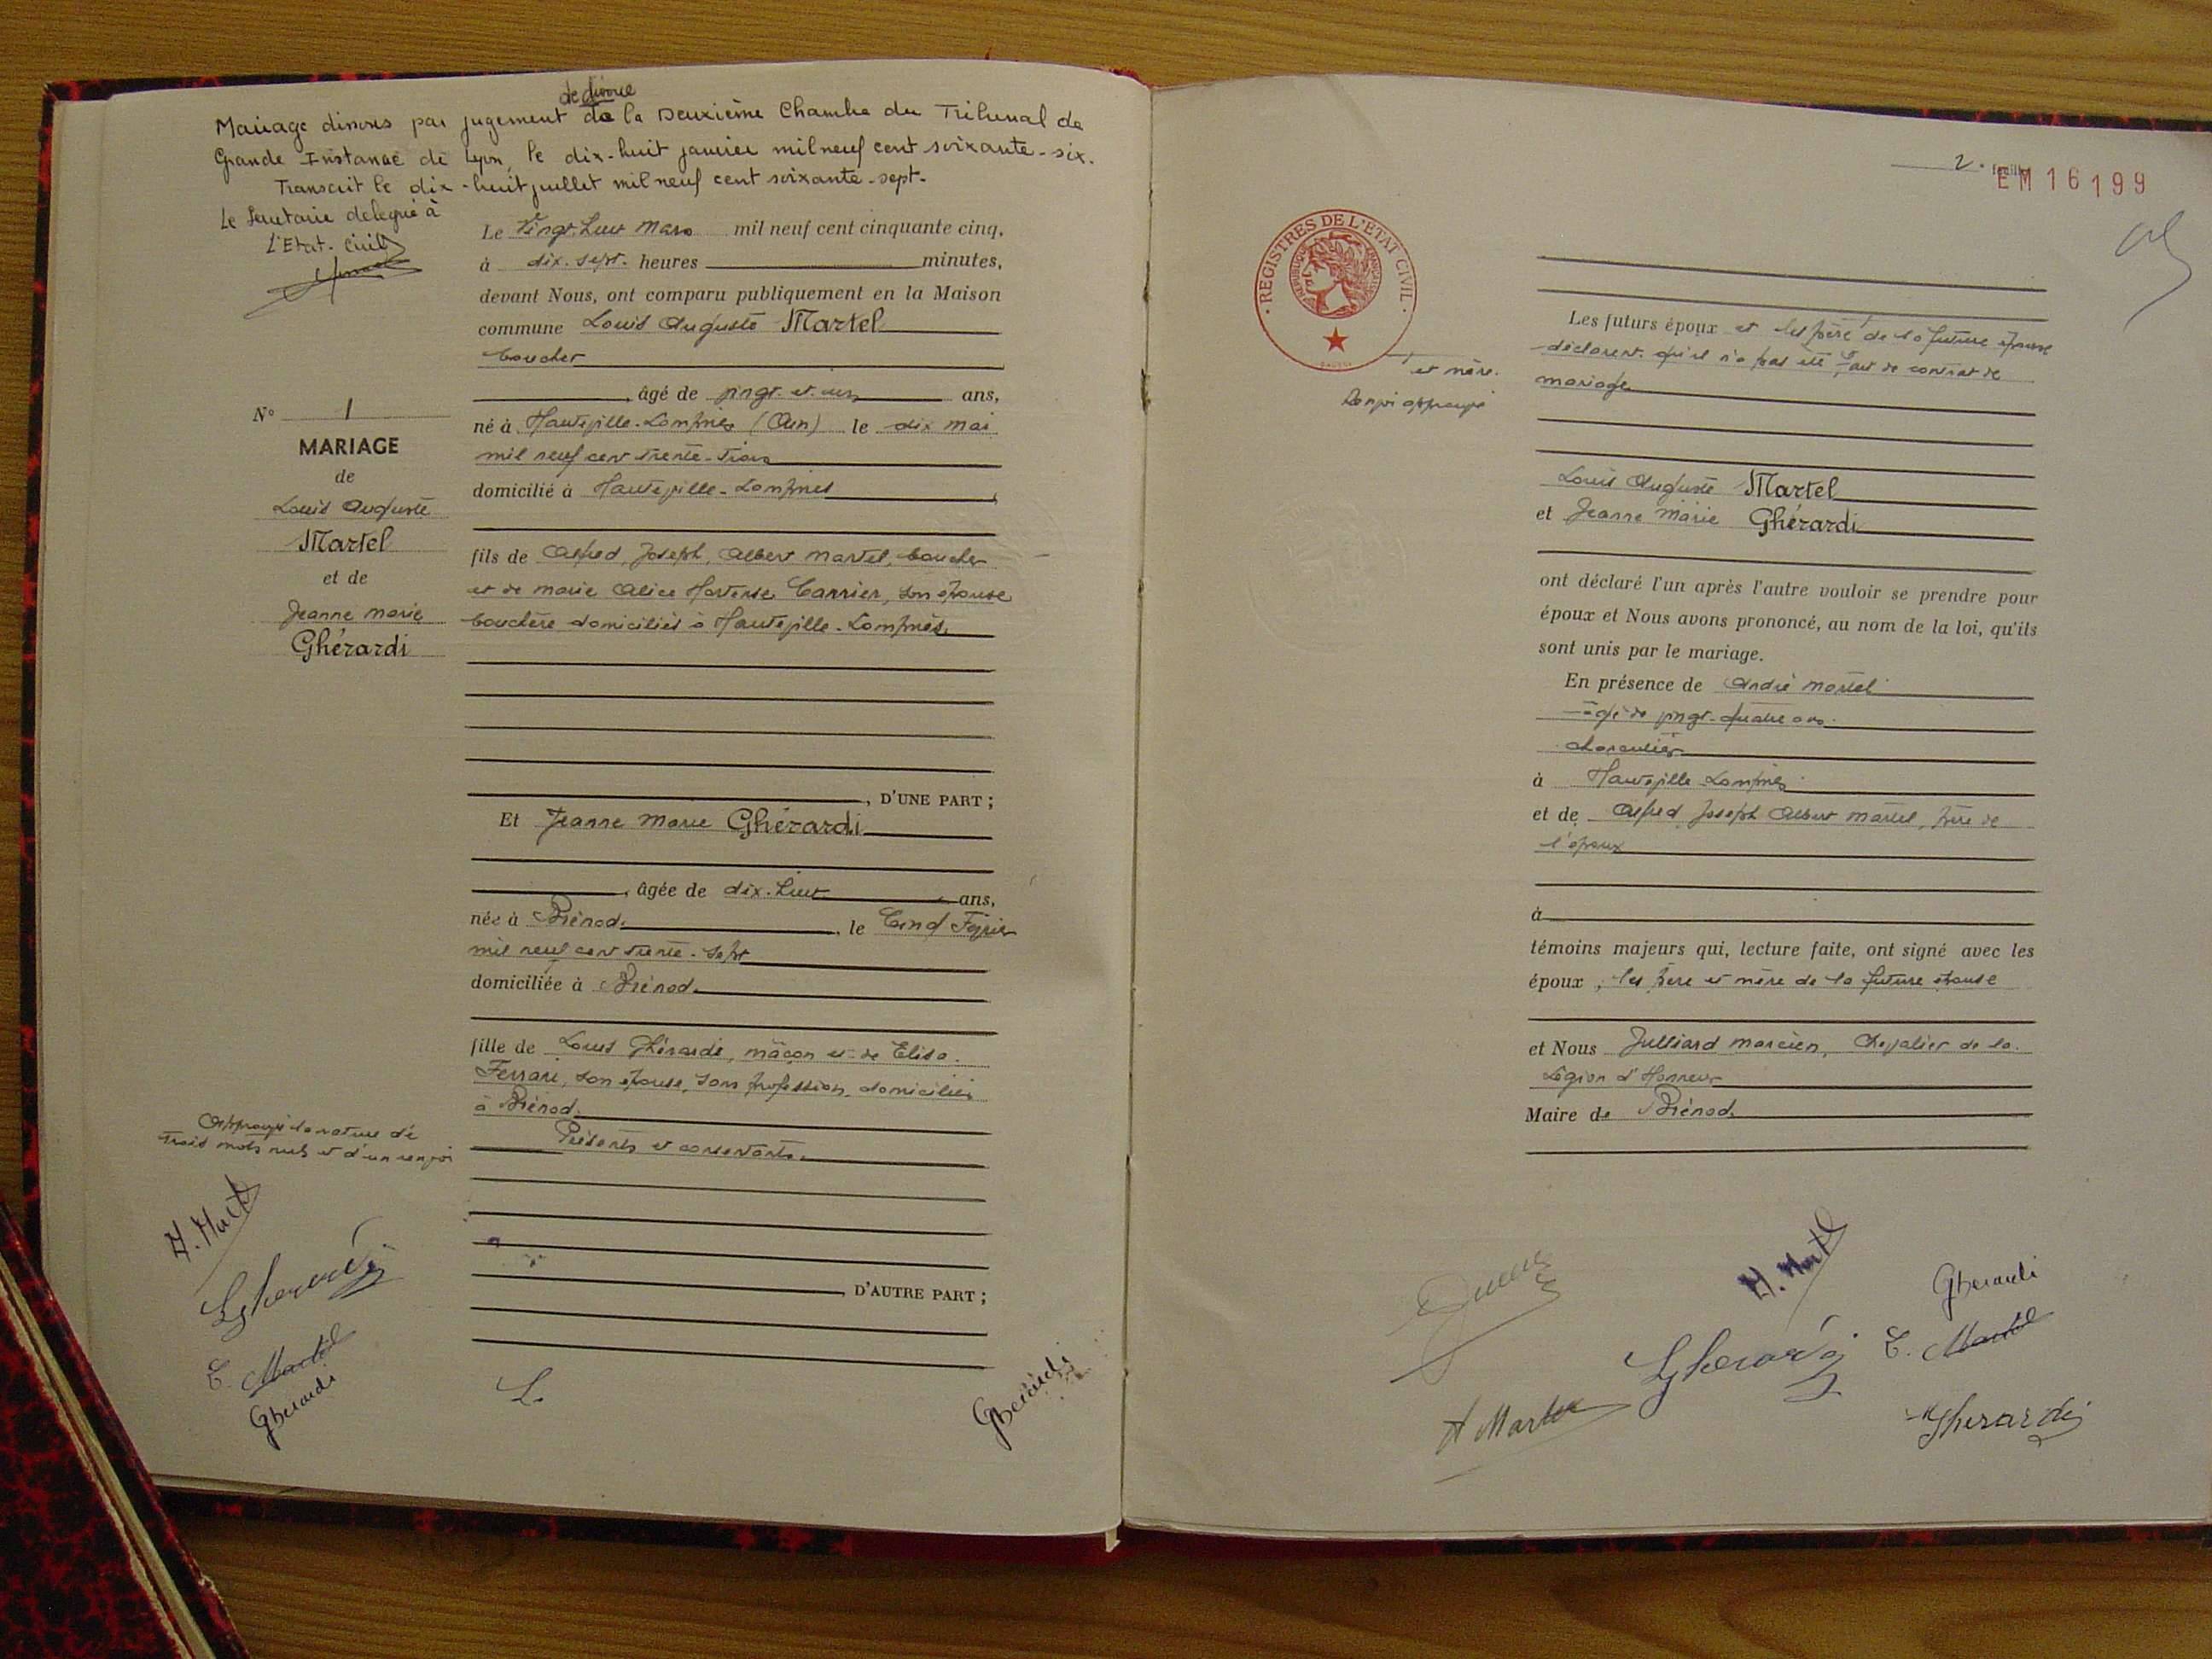 de divorce
Mariage dissous par jugement de la Deuxième Chambre du Tribunal de
Grande Instance de Lyon, le dix-huit janvier mil neuf cent soixante-six.
Transcrit le dix-huit juillet mil neuf cent soixante-sept.
Le Secrétaire délégué à
L'Etat-Civil
Le Vingt. huit Mars mil neuf cent cinquante cinq,
à dix-sept heures minutes,
devant Nous, ont comparu publiquement en la Maison
commune Louis Auguste Martel
boucher
, âgé de vingt et un ans,
né à Hauteville-Lompnes (Ain) le dix mai
mil neuf cent trente-trois
domicilié à Hauteville-Lompnes,
fils de Alfred, Joseph, Albert Martel, boucher
et de Marie Alice Hortense Carrier, son épouse
bouchère domiciliés à Hauteville-Lompnès.
, D'UNE PART ;
N° 1
MARIAGE
de
Louis Auguste
Martel
et de
Jeanne Marie
Ghérardi
Et Jeanne Marie Ghérardi
, âgée de dix-huit ans,
née à Brénod, le Cinq Février
mil neuf cent trente-sept
domiciliée à Brénod.
fille de Louis Ghérardi, maçon et de Elisa
Ferrari, son épouse, sans profession, domiciliés
à Brénod.
Présents et consentants.
, D'AUTRE PART ;
Approuvé la rature de
trois mots nuls et d'un renvoi
A. Martel
L Gherardi
E. Martel
Gherardi
L.
Gherardi
2e feuille
EM 16199
REGISTRES DE L'ÉTAT CIVIL
RÉPUBLIQUE FRANÇAISE
Les futurs époux et les père de la future épouse
déclarent qu'il n'a pas été fait de contrat de
mariage
et mère.
Renvoi approuvé
Louis Auguste Martel
et Jeanne Marie Ghérardi
ont déclaré l'un après l'autre vouloir se prendre pour
époux et Nous avons prononcé, au nom de la loi, qu'ils
sont unis par le mariage.
En présence de André Martel
âgé de vingt-quatre ans.
charcutier
à Hauteville Lompnes
et de Alfred Joseph Albert Martel, père de
l'époux
à
témoins majeurs qui, lecture faite, ont signé avec les
époux, les père et mère de la future épouse
et Nous Julliard Marcien, Chevalier de la
Légion d'Honneur
Maire de Brénod.
A. Martel
Gherardi
L Gherardi
E. Martel
A Martel
Gherardi